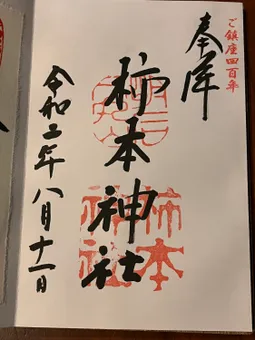 ご鎮座四百年
奉拝
柿本神社
柿本
神社
令和二年八月十一日